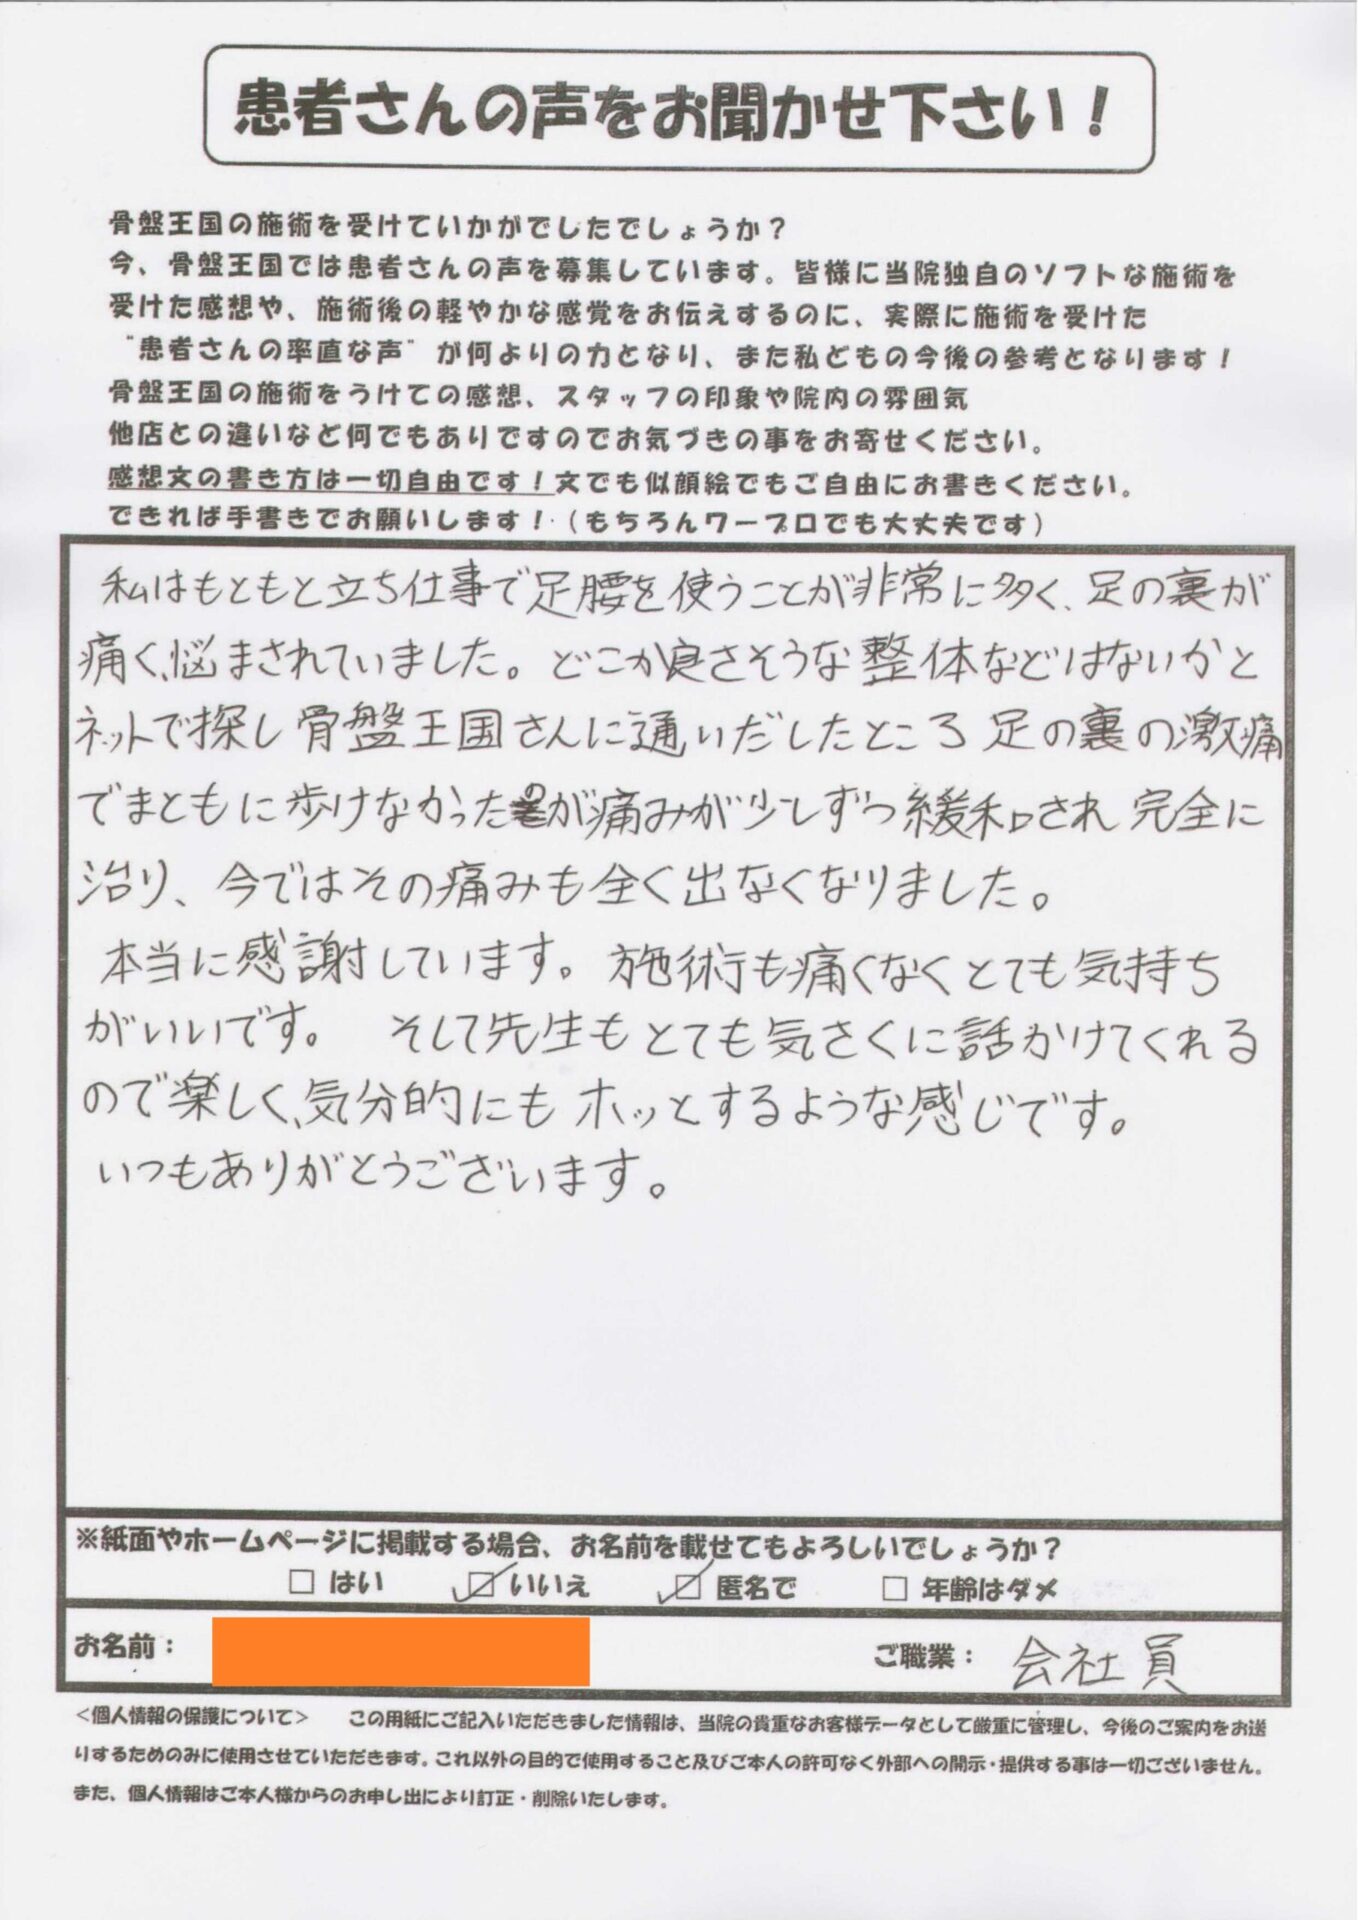 患者さんの声をお聞かせ下さい！
骨盤王国の施術を受けていかがでしたでしょうか？
今、骨盤王国では患者さんの声を募集しています。皆様に当院独自のソフトな施術を
受けた感想や、施術後の軽やかな感覚をお伝えするのに、実際に施術を受けた
"患者さんの率直な声"が何よりの力となり、また私どもの今後の参考となります！
骨盤王国の施術をうけての感想、スタッフの印象や院内の雰囲気
他店との違いなど何でもありですのでお気づきの事をお寄せください。
感想文の書き方は一切自由です！文でも似顔絵でもご自由にお書きください。
できれば手書きでお願いします！（もちろんワープロでも大丈夫です）
私はもともと立ち仕事で足腰を使うことが非常に多く、足の裏が
痛く、悩まされていました。どこか良さそうな整体などはないかと
ネットで探し骨盤王国さんに通いだしたところ足の裏の激痛
でまともに歩けなかったのが痛みが少しずつ緩和され完全に
治り、今ではその痛みも全く出なくなりました。
本当に感謝しています。施術も痛くなくとても気持ち
がいいです。 そして先生もとても気さくに話かけてくれる
ので楽しく、気分的にもホッとするような感じです。
いつもありがとうございます。
※紙面やホームページに掲載する場合、お名前を載せてもよろしいでしょうか？
□ はい ☑ いいえ ☑ 匿名で □ 年齢はダメ
お名前： ご職業： 会社員
＜個人情報の保護について＞ この用紙にご記入いただきました情報は、当院の貴重なお客様データとして厳重に管理し、今後のご案内をお送
りするためのみに使用させていただきます。これ以外の目的で使用すること及びご本人の許可なく外部への開示・提供する事は一切ございません。
また、個人情報はご本人様からのお申し出により訂正・削除いたします。